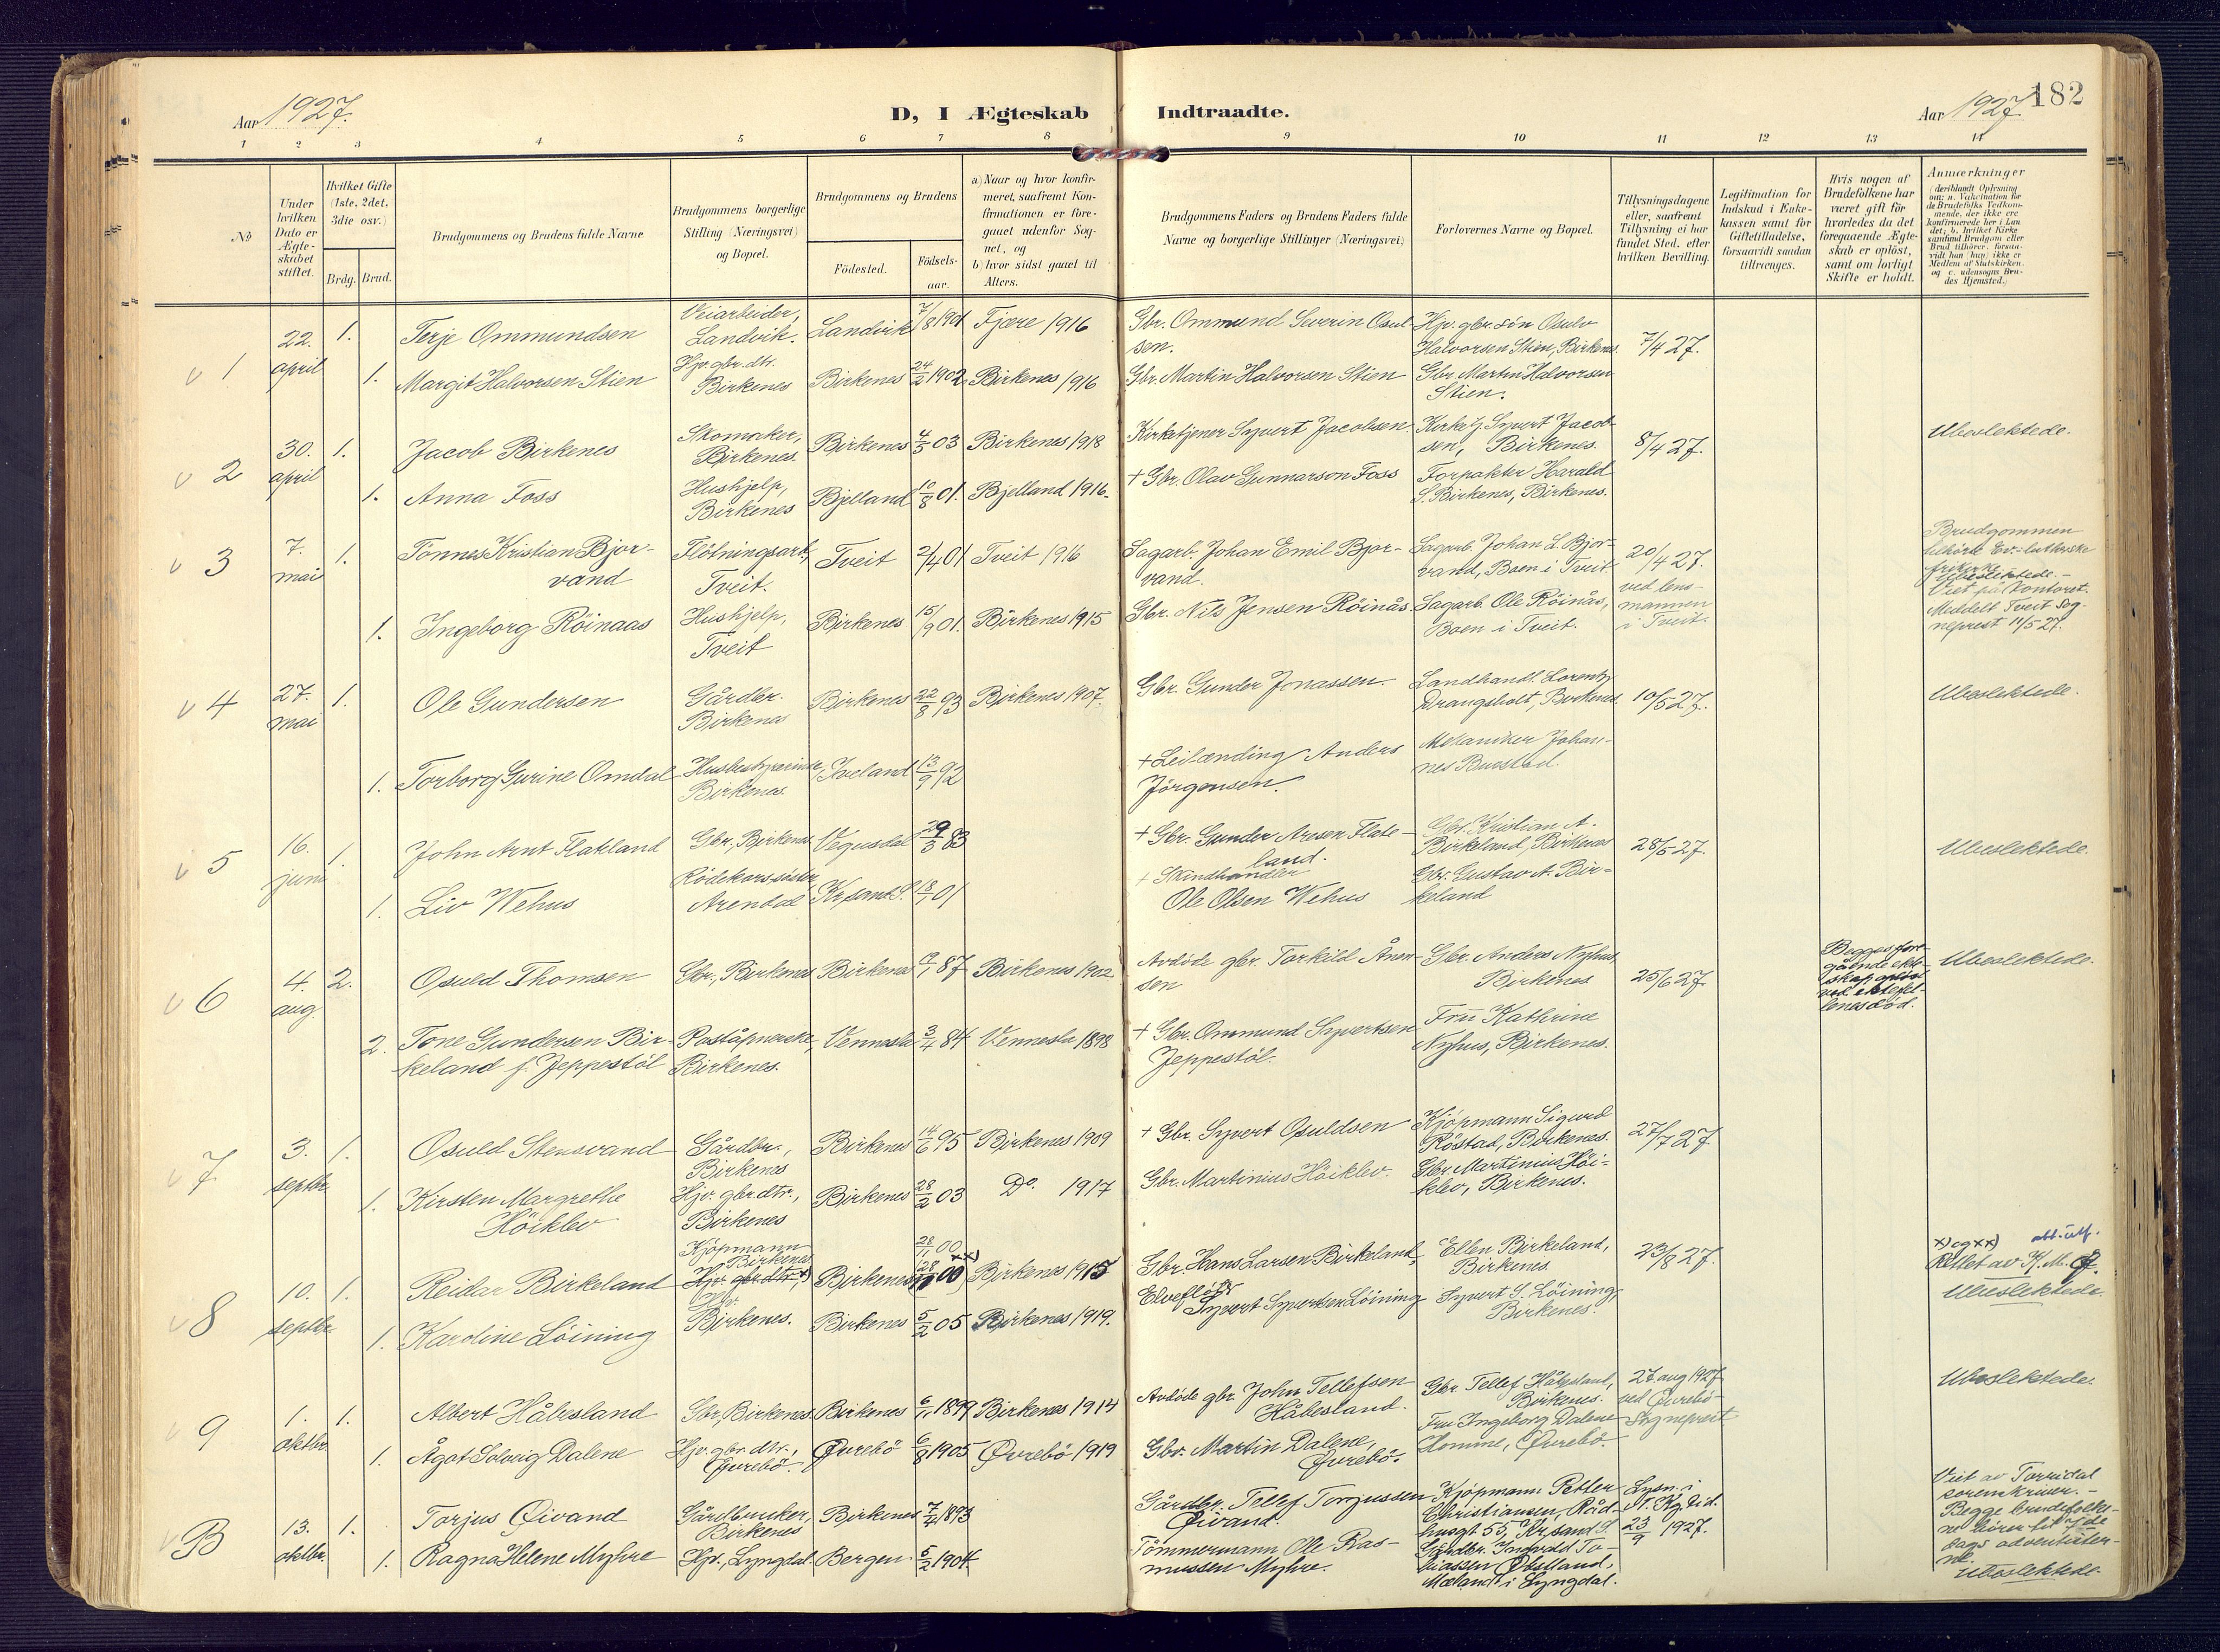 Aar 1927.
D, I Ægteskab Indtraadte.
Aar 1927. 182
1 2 3 4 5 6 7 8 9 10 11 12 13 14
№
Under hvilken Dato er Ægteskabet stiftet.
Hvilket Gifte (1ste, 2det, 3die osv.)
Brdg. Brud.
Brudgommens og Brudens fulde Navne
Brudgommens borgerlige Stilling (Næringsvei) og Bopæl.
Brudgommens og Brudens
Födested. Födsels-aar.
a) Naar og hvor konfirmeret, saafremt Konfirmationen er foregaaet udenfor Sognet, og
b) hvor sidst gaaet til Alters.
Brudgommens Faders og Brudens Faders fulde Navne og borgerlige Stillinger (Næringsvei)
Forlovernes Navne og Bopæl.
Tillysningsdagene eller, saafremt Tillysning ei har fundet Sted, efter hvilken Bevilling.
Legitimation for Indskud i Enkekassen samt for Giftetilladelse, forsaavidt saadan tiltrænges.
Hvis nogen af Brudefolkene har været gift för hvorledes da det foregaaende Ægteskab er oplöst, samt om lovligt Skifte er holdt.
Anmærkninger
(deriblandt Oplysning om: a. Vakcination for de Brudefolks Vedkommende, der ikke ere konfirmerede her i Landet; b. hvilket Kirkesamfund Brudgom eller Brud tilhörer, forsaavidt han (hun) ikke er Medlem af Statskirken, og c. udensogns Brudes Hjemsted.)
1 22. april 1. Terje Ommundsen Veiarbeider, Landvik. Landvik 7/8 1901 Fjære 1916 Gbr. Ommund Severin Osulsen. Hjv. gbr. sön Osulv Halvorsen Stien, Birkenes. 7/4 27.
1. Margit Halvorsen Stien Hjv. gbr. dtr. Birkenes Birkenes 24/2 1902 Birkenes 1916 Gbr. Martin Halvorsen Stien Gbr. Martin Halvorsen Stien.
2 30. april 1. Jacob Birkenes Skomaker, Birkenes. Birkenes 4/5 03 Birkenes 1918 Kirketjener Syvert Jacobsen. Kirketj. Syvert Jacobsen, Birkenes. 8/4 27. Ubeslektede.
1. Anna Foss Hushjelp, Birkenes Bjelland 10/8 01. Bjelland 1916. + Gbr. Olav Gunnarson Foss Forpakter Harald S. Birkenes, Birkenes.
3 7. mai 1. Tönnes Kristian Bjorvand Flötningsarb., Tveit. Tveit 2/4 01 Tveit 1916 Sagarb. Johan Emil Bjorvand. Sagarb. Johan E. Bjorvand, Boen i Tveit. 20/4 27. ved lensmannen i Tveit. Brudgommen tilhörte Ev.-lutherske frikirke. Ubeslektede. – Viet på kontoret. Meddelt Tveit sogneprest 11/5 27.
1. Ingeborg Röinaas Hushjelp, Tveit Birkenes 15/9 01. Birkenes 1915 Gbr. Nils Jensen Röinås. Sagarb. Ole Röinås, Boen i Tveit.
4 27. mai 1. Ole Gundersen Gårdbr. Birkenes Birkenes 22/8 93 Birkenes 1907. Gbr. Gunder Jonassen. Landhandl. Lorentz Drangsholt, Birkenes. 10/5 27. Ubeslektede.
1. Torborg Gurine Omdal Husbestyrerinde, Birkenes. Iveland 13/9 92 + Leilænding Anders Jörgensen. Mekaniker Johannes Bustad.
5 16. juni 1. John Arnt Flakland Gbr., Birkenes Vegusdal 29/3 83 + Gbr. Gunder Aresen Flateland. Gbr. Kristian A. Birkeland, Birkenes 28/5 27. Ubeslektede.
1. Liv Wehus Rödekorssöster Arendal Kr.sand S. 18/1 01 + Skindhandler Ole Olsen Wehus Gbr. Gustav A. Birkeland
6 4. aug. 2. Osuld Thomsen Gbr., Birkenes Birkenes 19/1 87 Birkenes 1902 Avdöde gbr. Torkild Ånonsen Gbr. Anders Nyhus Birkenes 25/6 27. Begges foregående ekteskap oplöst ved ektefellenes död. Ubeslektede.
2. Tone Gundersen Birkeland f. Jeppestöl Poståpnerske, Birkenes. Vennesla 3/4 84 Vennesla 1898 + Gbr. Ommund Syvertsen Jeppestöl. Fru Kathrine Nyhus, Birkenes.
7 3. septbr. 1. Osuld Stensvand Gårdbr., Birkenes Birkenes 14/6 95 Birkenes 1909 + Gbr. Syvert Osuldsen Kjöpmann Sigurd Röstad, Birkenes. 27/7 27.
1. Kirsten Margrethe Höiklev Hjv. gbr. dtr., Birkenes Birkenes 28/2 03 Do. 1917 Gbr. Martinius Höiklev. Gbr. Martinius Höiklev, Birkenes.
8 10. septbr. 1. Reidar Birkeland Kjöpmann Birkenes Hjv. gbr. dtr. x) Birkenes 28/11 00 xx) Birkenes 1915 Gbr. Hans Larsen Birkeland, Ellen Birkeland, Birkenes 23/8 27. x) og xx) Rettet av K. M. Ubeslektede.
1. Karoline Löining Birkenes. Birkenes 5/2 05 Birkenes 1919. Elveflöt. Syvert Syvertsen Löining Syvert S. Löining, Birkenes.
9 1. oktbr. 1. Albert Håbesland Gbr., Birkenes. Birkenes 6/11 1899 Birkenes 1914 Avdöde gbr. John Tellefsen Håbesland. Gbr. Tellef Håbesland, Birkenes. 27 aug 1927 ved Øvrebö Sogneprest Ubeslektede.
1. Ågot Solveig Dalene Hjv. gbr. dtr., Øvrebö. Øvrebö 6/8 1905 Øvrebö 1919 Gbr. Martin Dalene, Øvrebö. Fru Ingeborg Dalene Homme, Øvrebö.
B 13. oktbr. 1. Torjus Øivand Gårdbruker, Birkenes Birkenes 7/4 1893 Gårdbr. Tellef Torjussen Øivand. Kjöpmann Petter Christiansen, Rådhusgt. 55, Kr.sand S. Lysn. i N. Kg. tid. 23/9 1927. Viet av Torridal sorenskriver. – Begge brudefolkene hörer til syvde dags adventisterne. Ubeslektede.
1. Ragna Helene Myhre Hjv., Lyngdal. Bergen. 5/2 1904 Tömmermann Ole Rasmussen Myhre. Gårdbr. Ingvald Tobiassen Øbelland, Mæland i Lyngdal.